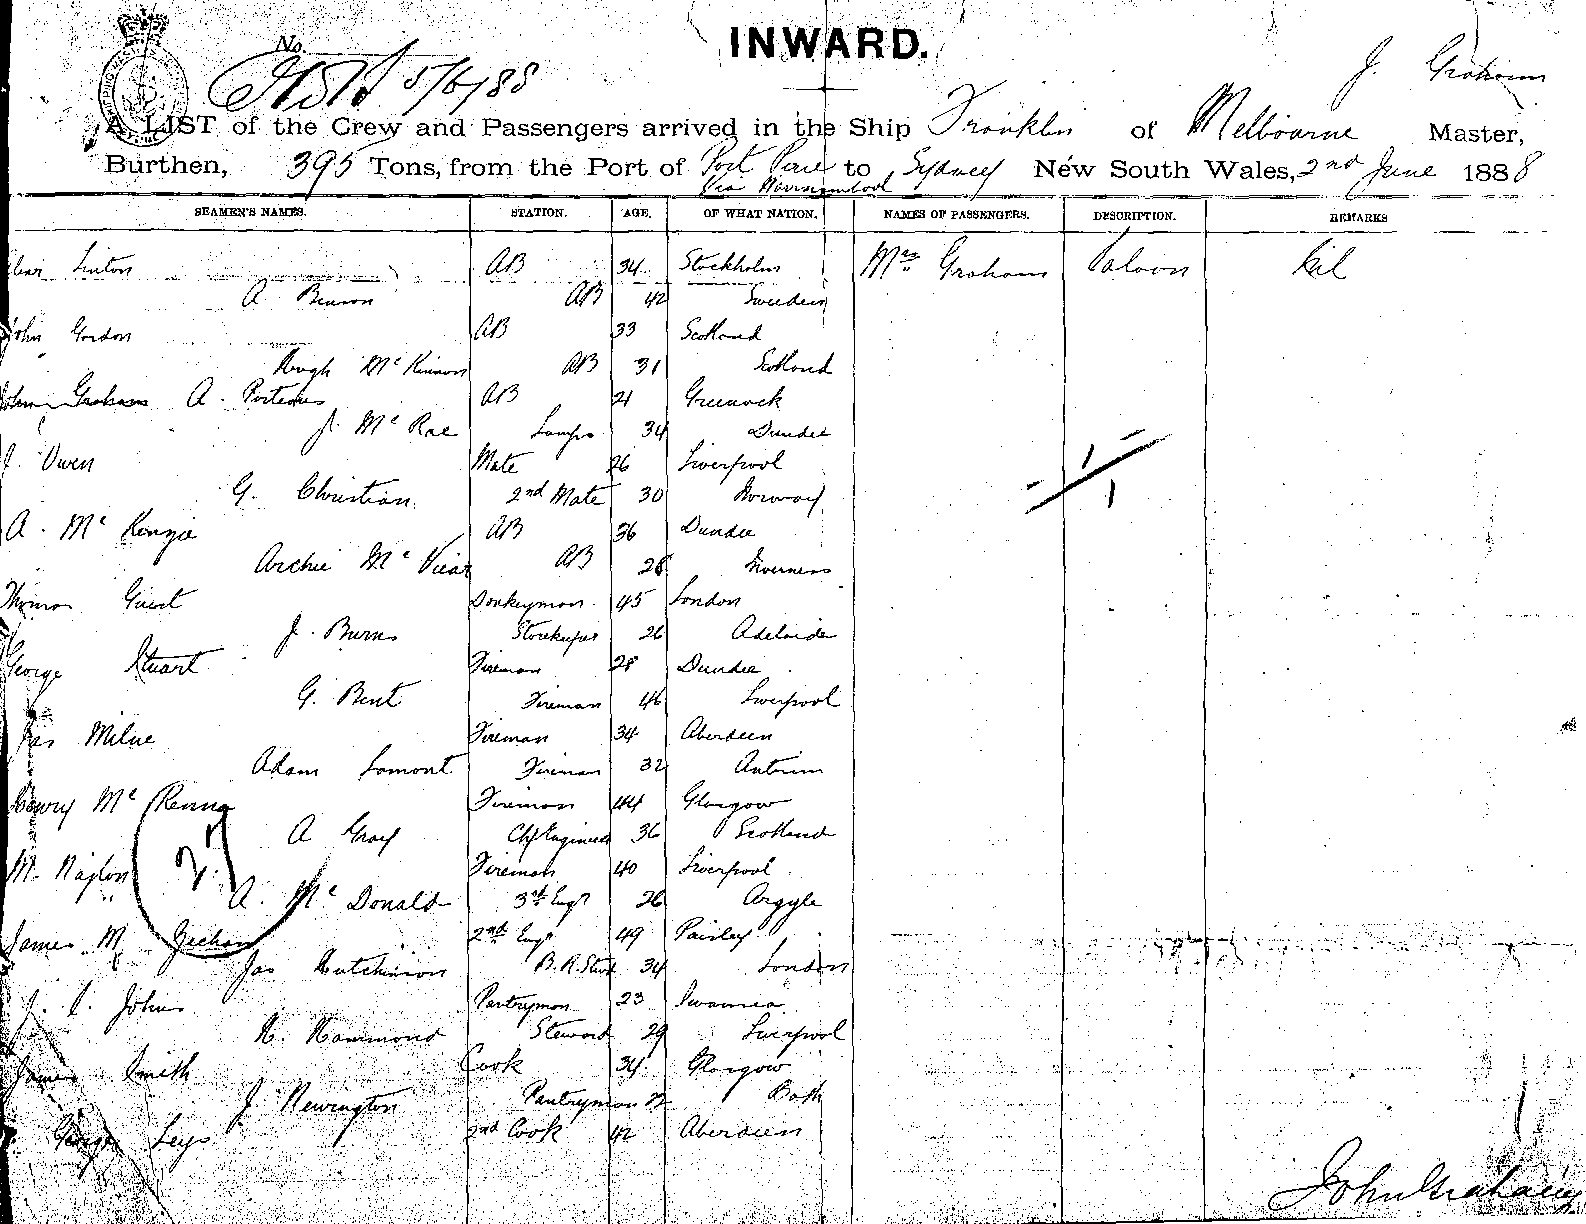 INWARD.
No. 5/6/88
J. Graham
A LIST of the Crew and Passengers arrived in the Ship Franklin of Melbourne Master,
Burthen, 395 Tons, from the Port of Port Pirie to Sydney New South Wales, 2nd June 1888
Via Warrnambool
SEAMEN'S NAMES. STATION. AGE. OF WHAT NATION. NAMES OF PASSENGERS. DESCRIPTION. REMARKS
Linton AB 34 Stockholm Mrs Graham Saloon
A Benson AB 42 Sweden
John Gordon AB 33 Scotland
Hugh McKinnon AB 31 Scotland
John Graham A. Porteous AB 21 Greenock
J. McRae Lamps 34 Dundee
J. Owen Mate 26 Liverpool
G. Christian 2nd Mate 30 Norway
A. McKenzie AB 36 Dundee
Archie McVicar AB 28 Inverness
Thomas Guest Donkeyman 45 London
J. Burns Storekeeper 26 Adelaide
George Stuart Fireman 28 Dundee
G. Bent Fireman 46 Liverpool
Jas Milne Fireman 34 Aberdeen
Adam Lamont Fireman 32 Antrim
Henry McKenna Fireman 44 Glasgow
A Gray Chf Engineer 36 Scotland
M. Fireman 40 Liverpool
A. McDonald 3rd Engr 26 Argyle
James M 2nd Engr 49 Paisley
Jas Hutchinson 34 London
Johns Pantryman 23 Swansea
H. Hammond Steward 29 Liverpool
James Smith Cook 34 Glasgow
J. Newington Pantryman 22 Bath
George Leys 2nd Cook 42 Aberdeen
John Graham